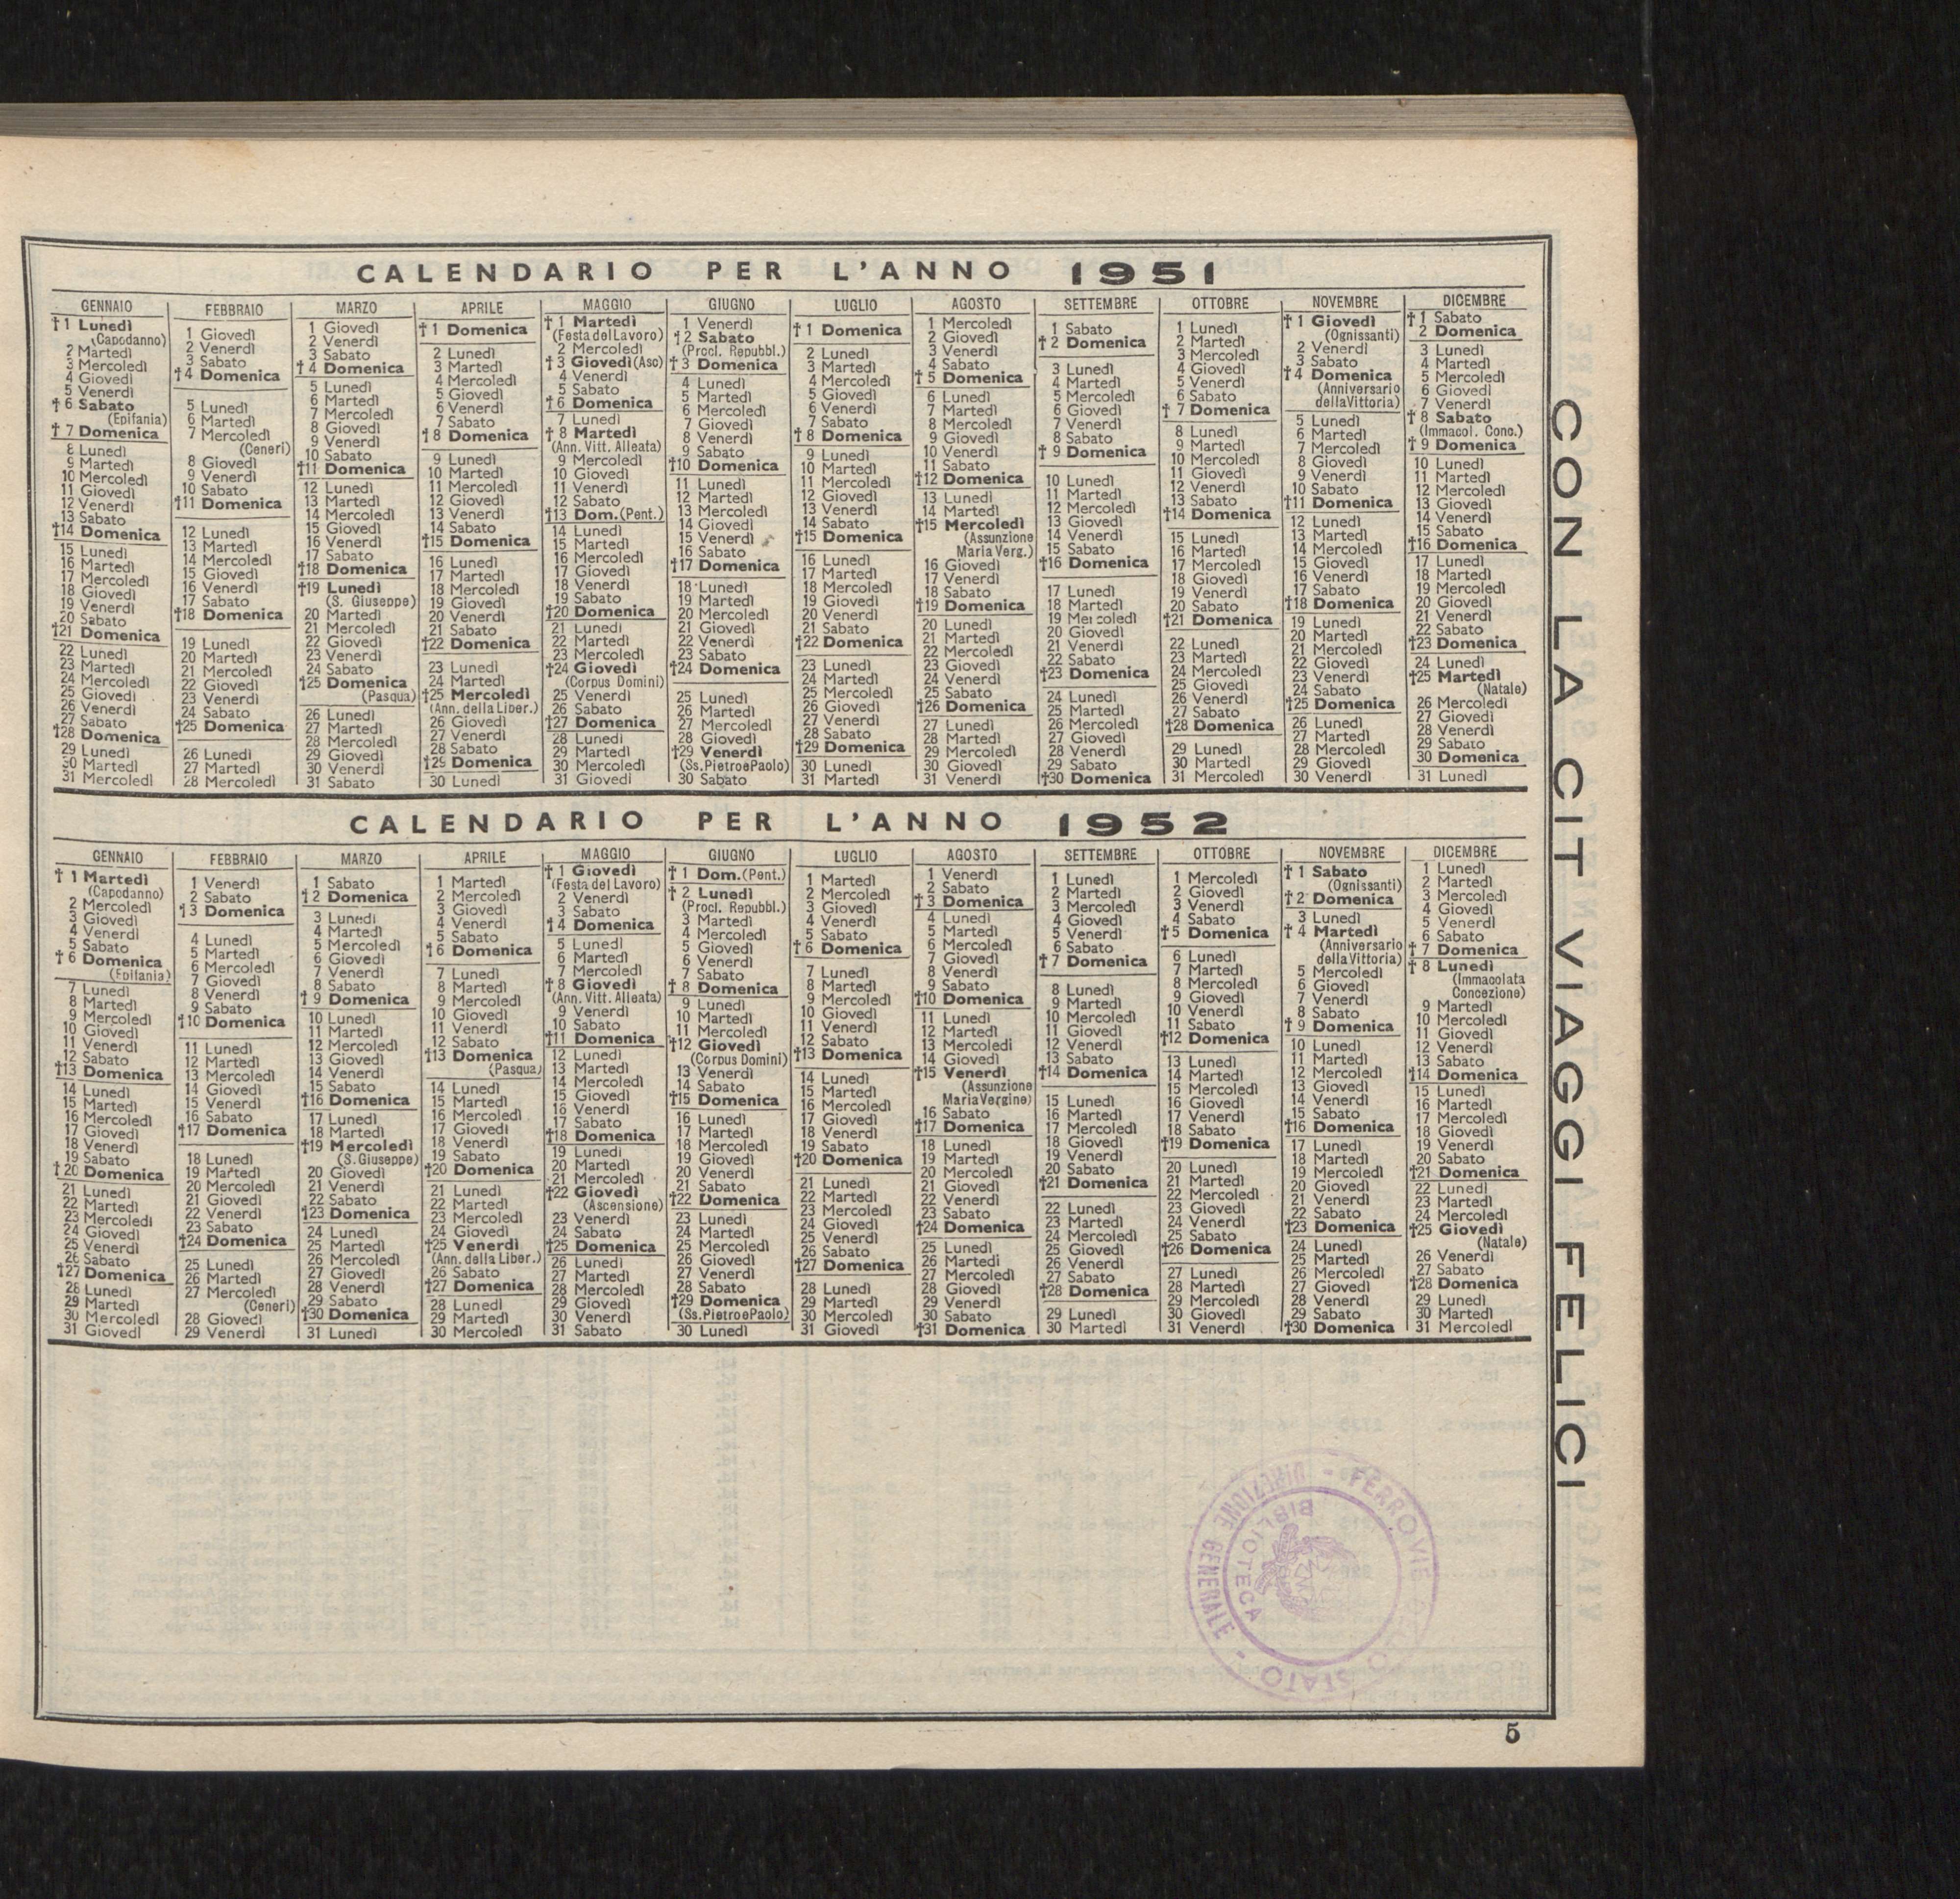 CALENDARIO PER L'ANNO 1951
GENNAIO
†1 Lunedì
(Capodanno)
2 Martedì
3 Mercoledì
4 Giovedì
5 Venerdì
†6 Sabato
(Epifania)
†7 Domenica
8 Lunedì
9 Martedì
10 Mercoledì
11 Giovedì
12 Venerdì
13 Sabato
†14 Domenica
15 Lunedì
16 Martedì
17 Mercoledì
18 Giovedì
19 Venerdì
20 Sabato
†21 Domenica
22 Lunedì
23 Martedì
24 Mercoledì
25 Giovedì
26 Venerdì
27 Sabato
†28 Domenica
29 Lunedì
30 Martedì
31 Mercoledì
FEBBRAIO
1 Giovedì
2 Venerdì
3 Sabato
†4 Domenica
5 Lunedì
6 Martedì
7 Mercoledì
(Ceneri)
8 Giovedì
9 Venerdì
10 Sabato
†11 Domenica
12 Lunedì
13 Martedì
14 Mercoledì
15 Giovedì
16 Venerdì
17 Sabato
†18 Domenica
19 Lunedì
20 Martedì
21 Mercoledì
22 Giovedì
23 Venerdì
24 Sabato
†25 Domenica
26 Lunedì
27 Martedì
28 Mercoledì
MARZO
1 Giovedì
2 Venerdì
3 Sabato
†4 Domenica
5 Lunedì
6 Martedì
7 Mercoledì
8 Giovedì
9 Venerdì
10 Sabato
†11 Domenica
12 Lunedì
13 Martedì
14 Mercoledì
15 Giovedì
16 Venerdì
17 Sabato
†18 Domenica
†19 Lunedì
(S. Giuseppe)
20 Martedì
21 Mercoledì
22 Giovedì
23 Venerdì
24 Sabato
†25 Domenica
(Pasqua)
26 Lunedì
27 Martedì
28 Mercoledì
29 Giovedì
30 Venerdì
31 Sabato
APRILE
†1 Domenica
2 Lunedì
3 Martedì
4 Mercoledì
5 Giovedì
6 Venerdì
7 Sabato
†8 Domenica
9 Lunedì
10 Martedì
11 Mercoledì
12 Giovedì
13 Venerdì
14 Sabato
†15 Domenica
16 Lunedì
17 Martedì
18 Mercoledì
19 Giovedì
20 Venerdì
21 Sabato
†22 Domenica
23 Lunedì
24 Martedì
†25 Mercoledì
(Ann. della Liber.)
26 Giovedì
27 Venerdì
28 Sabato
†29 Domenica
30 Lunedì
MAGGIO
†1 Martedì
(Festa del Lavoro)
2 Mercoledì
†3 Giovedì (Asc)
4 Venerdì
5 Sabato
†6 Domenica
7 Lunedì
†8 Martedì
(Ann. Vitt. Alleata)
9 Mercoledì
10 Giovedì
11 Venerdì
12 Sabato
†13 Dom. (Pent.)
14 Lunedì
15 Martedì
16 Mercoledì
17 Giovedì
18 Venerdì
19 Sabato
†20 Domenica
21 Lunedì
22 Martedì
23 Mercoledì
†24 Giovedì
(Corpus Domini)
25 Venerdì
26 Sabato
†27 Domenica
28 Lunedì
29 Martedì
30 Mercoledì
31 Giovedì
GIUGNO
1 Venerdì
†2 Sabato
(Procl. Repubbl.)
†3 Domenica
4 Lunedì
5 Martedì
6 Mercoledì
7 Giovedì
8 Venerdì
9 Sabato
†10 Domenica
11 Lunedì
12 Martedì
13 Mercoledì
14 Giovedì
15 Venerdì
16 Sabato
†17 Domenica
18 Lunedì
19 Martedì
20 Mercoledì
21 Giovedì
22 Venerdì
23 Sabato
†24 Domenica
25 Lunedì
26 Martedì
27 Mercoledì
28 Giovedì
†29 Venerdì
(Ss. Pietro e Paolo)
30 Sabato
LUGLIO
†1 Domenica
2 Lunedì
3 Martedì
4 Mercoledì
5 Giovedì
6 Venerdì
7 Sabato
†8 Domenica
9 Lunedì
10 Martedì
11 Mercoledì
12 Giovedì
13 Venerdì
14 Sabato
†15 Domenica
16 Lunedì
17 Martedì
18 Mercoledì
19 Giovedì
20 Venerdì
21 Sabato
†22 Domenica
23 Lunedì
24 Martedì
25 Mercoledì
26 Giovedì
27 Venerdì
28 Sabato
†29 Domenica
30 Lunedì
31 Martedì
AGOSTO
1 Mercoledì
2 Giovedì
3 Venerdì
4 Sabato
†5 Domenica
6 Lunedì
7 Martedì
8 Mercoledì
9 Giovedì
10 Venerdì
11 Sabato
†12 Domenica
13 Lunedì
14 Martedì
†15 Mercoledì
(Assunzione
Maria Verg.)
16 Giovedì
17 Venerdì
18 Sabato
†19 Domenica
20 Lunedì
21 Martedì
22 Mercoledì
23 Giovedì
24 Venerdì
25 Sabato
†26 Domenica
27 Lunedì
28 Martedì
29 Mercoledì
30 Giovedì
31 Venerdì
SETTEMBRE
1 Sabato
†2 Domenica
3 Lunedì
4 Martedì
5 Mercoledì
6 Giovedì
7 Venerdì
8 Sabato
†9 Domenica
10 Lunedì
11 Martedì
12 Mercoledì
13 Giovedì
14 Venerdì
15 Sabato
†16 Domenica
17 Lunedì
18 Martedì
19 Mercoledì
20 Giovedì
21 Venerdì
22 Sabato
†23 Domenica
24 Lunedì
25 Martedì
26 Mercoledì
27 Giovedì
28 Venerdì
29 Sabato
†30 Domenica
OTTOBRE
1 Lunedì
2 Martedì
3 Mercoledì
4 Giovedì
5 Venerdì
6 Sabato
†7 Domenica
8 Lunedì
9 Martedì
10 Mercoledì
11 Giovedì
12 Venerdì
13 Sabato
†14 Domenica
15 Lunedì
16 Martedì
17 Mercoledì
18 Giovedì
19 Venerdì
20 Sabato
†21 Domenica
22 Lunedì
23 Martedì
24 Mercoledì
25 Giovedì
26 Venerdì
27 Sabato
†28 Domenica
29 Lunedì
30 Martedì
31 Mercoledì
NOVEMBRE
†1 Giovedì
(Ognissanti)
2 Venerdì
3 Sabato
†4 Domenica
(Anniversario
della Vittoria)
5 Lunedì
6 Martedì
7 Mercoledì
8 Giovedì
9 Venerdì
10 Sabato
†11 Domenica
12 Lunedì
13 Martedì
14 Mercoledì
15 Giovedì
16 Venerdì
17 Sabato
†18 Domenica
19 Lunedì
20 Martedì
21 Mercoledì
22 Giovedì
23 Venerdì
24 Sabato
†25 Domenica
26 Lunedì
27 Martedì
28 Mercoledì
29 Giovedì
30 Venerdì
DICEMBRE
†1 Sabato
2 Domenica
3 Lunedì
4 Martedì
5 Mercoledì
6 Giovedì
7 Venerdì
†8 Sabato
(Immacol. Conc.)
†9 Domenica
10 Lunedì
11 Martedì
12 Mercoledì
13 Giovedì
14 Venerdì
15 Sabato
†16 Domenica
17 Lunedì
18 Martedì
19 Mercoledì
20 Giovedì
21 Venerdì
22 Sabato
†23 Domenica
24 Lunedì
†25 Martedì
(Natale)
26 Mercoledì
27 Giovedì
28 Venerdì
29 Sabato
30 Domenica
31 Lunedì
CALENDARIO PER L'ANNO 1952
GENNAIO
†1 Martedì
(Capodanno)
2 Mercoledì
3 Giovedì
4 Venerdì
5 Sabato
†6 Domenica
(Epifania)
7 Lunedì
8 Martedì
9 Mercoledì
10 Giovedì
11 Venerdì
12 Sabato
†13 Domenica
14 Lunedì
15 Martedì
16 Mercoledì
17 Giovedì
18 Venerdì
19 Sabato
†20 Domenica
21 Lunedì
22 Martedì
23 Mercoledì
24 Giovedì
25 Venerdì
26 Sabato
†27 Domenica
28 Lunedì
29 Martedì
30 Mercoledì
31 Giovedì
FEBBRAIO
1 Venerdì
2 Sabato
†3 Domenica
4 Lunedì
5 Martedì
6 Mercoledì
7 Giovedì
8 Venerdì
9 Sabato
†10 Domenica
11 Lunedì
12 Martedì
13 Mercoledì
14 Giovedì
15 Venerdì
16 Sabato
†17 Domenica
18 Lunedì
19 Martedì
20 Mercoledì
21 Giovedì
22 Venerdì
23 Sabato
†24 Domenica
25 Lunedì
26 Martedì
27 Mercoledì
(Ceneri)
28 Giovedì
29 Venerdì
MARZO
1 Sabato
†2 Domenica
3 Lunedì
4 Martedì
5 Mercoledì
6 Giovedì
7 Venerdì
8 Sabato
†9 Domenica
10 Lunedì
11 Martedì
12 Mercoledì
13 Giovedì
14 Venerdì
15 Sabato
†16 Domenica
17 Lunedì
18 Martedì
†19 Mercoledì
(S. Giuseppe)
20 Giovedì
21 Venerdì
22 Sabato
†23 Domenica
24 Lunedì
25 Martedì
26 Mercoledì
27 Giovedì
28 Venerdì
29 Sabato
†30 Domenica
31 Lunedì
APRILE
1 Martedì
2 Mercoledì
3 Giovedì
4 Venerdì
5 Sabato
†6 Domenica
7 Lunedì
8 Martedì
9 Mercoledì
10 Giovedì
11 Venerdì
12 Sabato
†13 Domenica
(Pasqua)
14 Lunedì
15 Martedì
16 Mercoledì
17 Giovedì
18 Venerdì
19 Sabato
†20 Domenica
21 Lunedì
22 Martedì
23 Mercoledì
24 Giovedì
†25 Venerdì
(Ann. della Liber.)
26 Sabato
†27 Domenica
28 Lunedì
29 Martedì
30 Mercoledì
MAGGIO
†1 Giovedì
(Festa del Lavoro)
2 Venerdì
3 Sabato
†4 Domenica
5 Lunedì
6 Martedì
7 Mercoledì
†8 Giovedì
(Ann. Vitt. Alleata)
9 Venerdì
10 Sabato
†11 Domenica
12 Lunedì
13 Martedì
14 Mercoledì
15 Giovedì
16 Venerdì
17 Sabato
†18 Domenica
19 Lunedì
20 Martedì
21 Mercoledì
†22 Giovedì
(Ascensione)
23 Venerdì
24 Sabato
†25 Domenica
26 Lunedì
27 Martedì
28 Mercoledì
29 Giovedì
30 Venerdì
31 Sabato
GIUGNO
†1 Dom. (Pent.)
†2 Lunedì
(Procl. Repubbl.)
3 Martedì
4 Mercoledì
5 Giovedì
6 Venerdì
7 Sabato
†8 Domenica
9 Lunedì
10 Martedì
11 Mercoledì
†12 Giovedì
(Corpus Domini)
13 Venerdì
14 Sabato
†15 Domenica
16 Lunedì
17 Martedì
18 Mercoledì
19 Giovedì
20 Venerdì
21 Sabato
†22 Domenica
23 Lunedì
24 Martedì
25 Mercoledì
26 Giovedì
27 Venerdì
28 Sabato
†29 Domenica
(Ss. Pietro e Paolo)
30 Lunedì
LUGLIO
1 Martedì
2 Mercoledì
3 Giovedì
4 Venerdì
5 Sabato
†6 Domenica
7 Lunedì
8 Martedì
9 Mercoledì
10 Giovedì
11 Venerdì
12 Sabato
†13 Domenica
14 Lunedì
15 Martedì
16 Mercoledì
17 Giovedì
18 Venerdì
19 Sabato
†20 Domenica
21 Lunedì
22 Martedì
23 Mercoledì
24 Giovedì
25 Venerdì
26 Sabato
†27 Domenica
28 Lunedì
29 Martedì
30 Mercoledì
31 Giovedì
AGOSTO
1 Venerdì
2 Sabato
†3 Domenica
4 Lunedì
5 Martedì
6 Mercoledì
7 Giovedì
8 Venerdì
9 Sabato
†10 Domenica
11 Lunedì
12 Martedì
13 Mercoledì
14 Giovedì
†15 Venerdì
(Assunzione
Maria Vergine)
16 Sabato
†17 Domenica
18 Lunedì
19 Martedì
20 Mercoledì
21 Giovedì
22 Venerdì
23 Sabato
†24 Domenica
25 Lunedì
26 Martedì
27 Mercoledì
28 Giovedì
29 Venerdì
30 Sabato
†31 Domenica
SETTEMBRE
1 Lunedì
2 Martedì
3 Mercoledì
4 Giovedì
5 Venerdì
6 Sabato
†7 Domenica
8 Lunedì
9 Martedì
10 Mercoledì
11 Giovedì
12 Venerdì
13 Sabato
†14 Domenica
15 Lunedì
16 Martedì
17 Mercoledì
18 Giovedì
19 Venerdì
20 Sabato
†21 Domenica
22 Lunedì
23 Martedì
24 Mercoledì
25 Giovedì
26 Venerdì
27 Sabato
†28 Domenica
29 Lunedì
30 Martedì
OTTOBRE
1 Mercoledì
2 Giovedì
3 Venerdì
4 Sabato
†5 Domenica
6 Lunedì
7 Martedì
8 Mercoledì
9 Giovedì
10 Venerdì
11 Sabato
†12 Domenica
13 Lunedì
14 Martedì
15 Mercoledì
16 Giovedì
17 Venerdì
18 Sabato
†19 Domenica
20 Lunedì
21 Martedì
22 Mercoledì
23 Giovedì
24 Venerdì
25 Sabato
†26 Domenica
27 Lunedì
28 Martedì
29 Mercoledì
30 Giovedì
31 Venerdì
NOVEMBRE
†1 Sabato
(Ognissanti)
†2 Domenica
3 Lunedì
†4 Martedì
(Anniversario
della Vittoria)
5 Mercoledì
6 Giovedì
7 Venerdì
8 Sabato
†9 Domenica
10 Lunedì
11 Martedì
12 Mercoledì
13 Giovedì
14 Venerdì
15 Sabato
†16 Domenica
17 Lunedì
18 Martedì
19 Mercoledì
20 Giovedì
21 Venerdì
22 Sabato
†23 Domenica
24 Lunedì
25 Martedì
26 Mercoledì
27 Giovedì
28 Venerdì
29 Sabato
†30 Domenica
DICEMBRE
1 Lunedì
2 Martedì
3 Mercoledì
4 Giovedì
5 Venerdì
6 Sabato
†7 Domenica
†8 Lunedì
(Immacolata
Concezione)
9 Martedì
10 Mercoledì
11 Giovedì
12 Venerdì
13 Sabato
†14 Domenica
15 Lunedì
16 Martedì
17 Mercoledì
18 Giovedì
19 Venerdì
20 Sabato
†21 Domenica
22 Lunedì
23 Martedì
24 Mercoledì
†25 Giovedì
(Natale)
26 Venerdì
27 Sabato
†28 Domenica
29 Lunedì
30 Martedì
31 Mercoledì
CON LA CIT VIAGGI FELICI
FERROVIE STATO - DIREZIONE GENERALE -
BIBLIOTECA
5